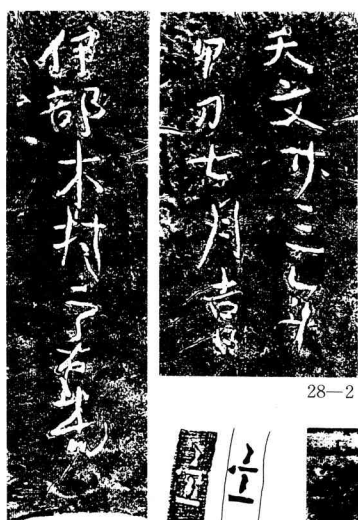 天文廿三年
甲刀七月吉日
伊部木村
28—2